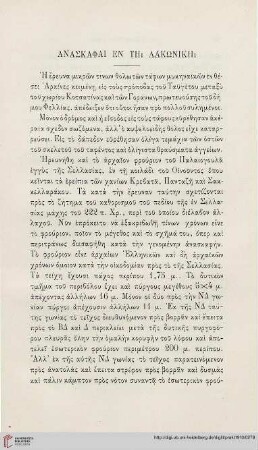 ΑΝΑΣΚΑΦΑΙ ΕΝ ΤΗι ΛΑΚΩΝΙΚΗι
Ἡ ἔρευνα μικρῶν τινων θολωτῶν τάφων μυκηναϊκῶν εἰς θέ-
σιν Ἀρκίνες κειμένην, εἰς τοὺς πρόποδας τοῦ Ταϋγέτου μεταξὺ
τοῦ χωρίου Κοτσατίνας καὶ τῶν Γοράνων, πρωτευούσης τοῦ δή-
μου Φελλίας, ἀπέδειξεν ὅτι οὗτοι ἦσαν πρὸ πολλοῦ συλημένοι.
Μόνον ὁ δρόμος καὶ ἡ εἴσοδος εἰς τοὺς τάφους εὑρέθησαν ἀκέ-
ραια σχεδὸν σωζόμενα, ἀλλ' ὁ κυψελοειδὴς θόλος εἶχε καταρ-
ρεύσει. Εἰς τὸ δάπεδον εὑρέθησαν ὀλίγα λείψανα τῶν ὀστῶν
τοῦ σκελετοῦ τοῦ ταφέντος καὶ ἐλάχιστα θραύσματα ἀγγείων.
Ἠρευνήθη καὶ τὸ ἀρχαῖον φρούριον τοῦ Παλαιογουλᾶ
ἐγγὺς τῆς Σελλασίας. Ἐν τῇ κοιλάδι τοῦ Οἰνοῦντος ὅπου
κεῖνται τὰ ἐρείπια τῶν χανίων Κρεβατᾶ, Πανταζῆ καὶ Δα-
κελλαράκου. Τὰ κατὰ τὴν ἔρευναν ταύτην σχετίζονται
πρὸς τὸ ζήτημα τοῦ καθορισμοῦ τοῦ πεδίου τῆς ἐν Σελλα-
σίᾳ μάχης τοῦ 222 π. Χρ., περὶ τοῦ ὁποίου διέλαβον ἀλ-
λαχοῦ. Νῦν πρόκειται νὰ ἐξακριβωθῇ τίνων χρόνων εἶνε
τὸ φρούριον, ποῖον τὸ μέγεθος καὶ τὸ σχῆμά του, ὅπερ καὶ
περιτράνως διεσαφήθη κατὰ τὴν γενομένην ἀνασκαφήν.
Τὸ φρούριον εἶνε ἀρχαίων Ἑλληνικῶν καὶ δὴ ἀρχαϊκῶν
χρόνων ὅμοιον κατὰ τὴν οἰκοδομίαν πρὸς τὸ τῆς Σελλασίας.
Τὰ τείχη ἔχουσι πάχος περίπου 1,75 μ. Τὸ δυτικὸν
τμῆμα τοῦ περιβόλου ἔχει καὶ πύργους μεγέθους 5×4 μ.
ἀπέχοντας ἀλλήλων 16 μ. Μόνον οἱ δύο πρὸς τὴν ΝΔ γω-
νίαν πύργοι ἀπέχουσιν ἀλλήλων 11 μ. Ἐκ τῆς ΝΔ ταύ-
της γωνίας τὸ τεῖχος διευθυνόμενον πρὸς βορρᾶν καὶ ἔπειτα
πρὸς τὰ ΒΔ καὶ Δ περικλείει μετὰ τῆς δυτικῆς πυργοφό-
ρου πλευρᾶς ὅλην τὴν ὁμαλὴν κορυφὴν τοῦ λόφου καὶ ἀπο-
τελεῖ ἐσωτερικὸν φρούριον περιμέτρου 200 μ. περίπου.
Ἀλλ' ἐκ τῆς αὐτῆς ΝΔ γωνίας τὸ τεῖχος παρατεινόμενον
πρὸς ἀνατολὰς καὶ ἔπειτα στρέφον πρὸς βορρᾶν καὶ δυσμὰς
καὶ πάλιν κάμπτον πρὸς νότον συναντᾷ τὸ ἐσωτερικὸν φρού-